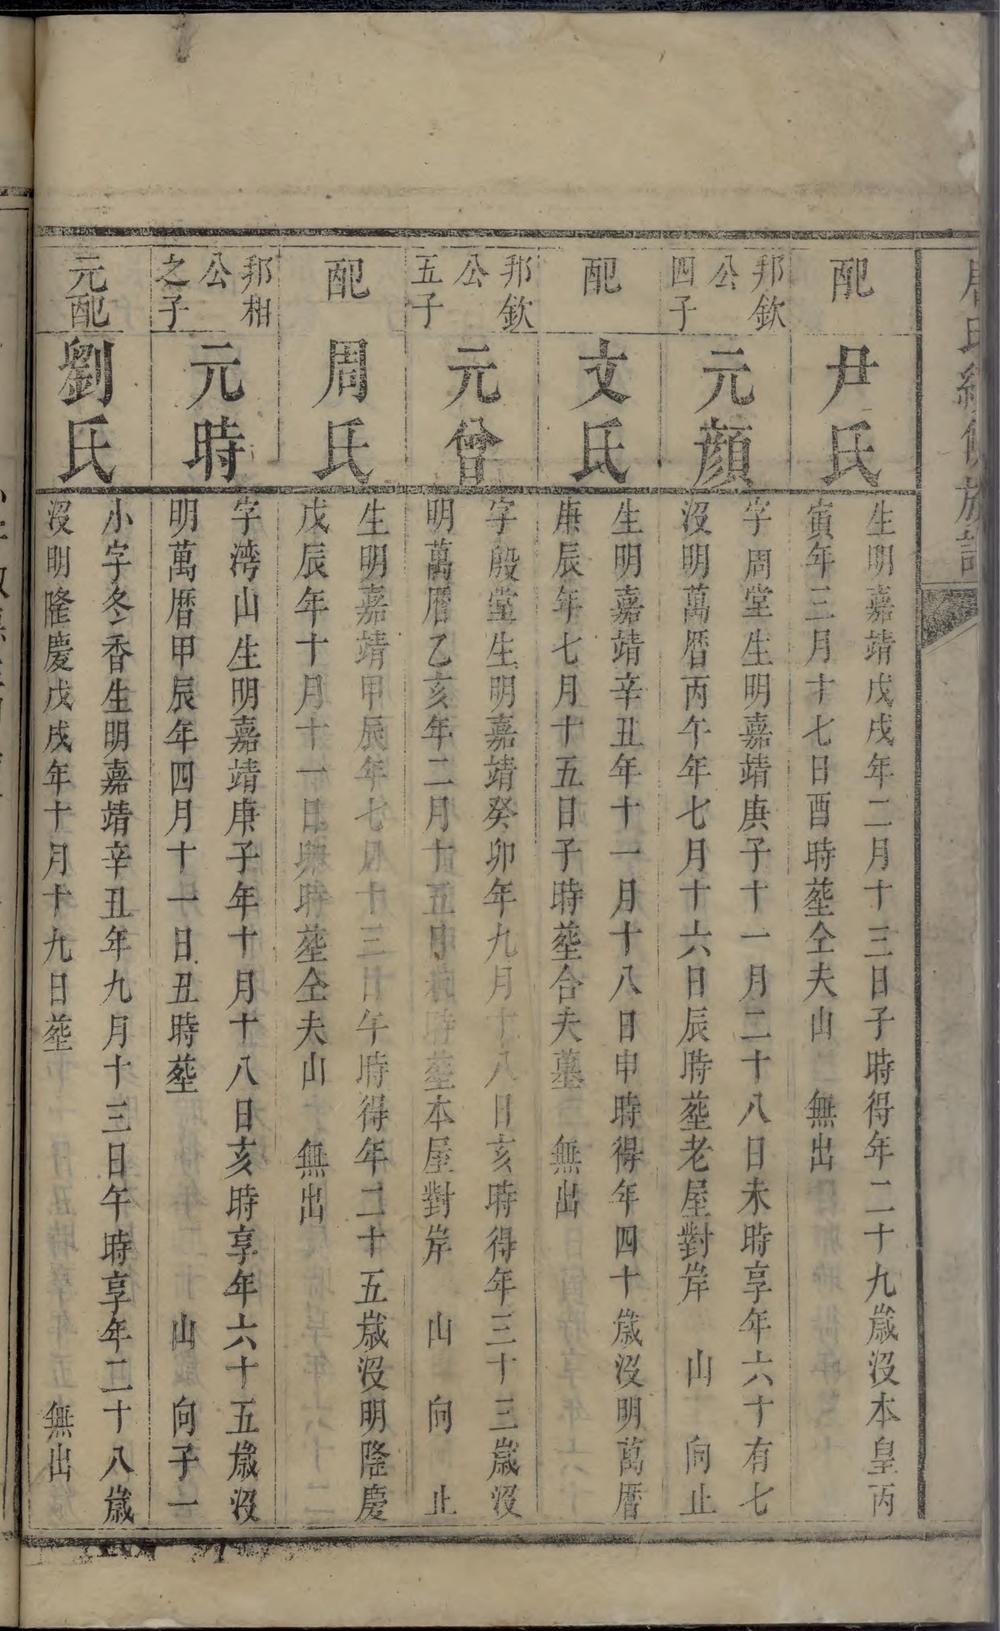 氏續修族譜
配
尹氏
生明嘉靖戊戌年二月十三日子時得年二十九歲沒本皇丙
寅年三月十七日酉時塟仝夫山 無出
邦欽
公
四子
元顏
字周堂生明嘉靖庚子十一月二十八日未時享年六十有七
沒明萬曆丙午年七月十六日辰時塟老屋對岸 山 向止
配
文氏
生明嘉靖辛丑年十一月十八日申時得年四十歲沒明萬曆
庚辰年七月十五日子時塟合夫墓 無出
邦欽
公
五子
元曾
字殷堂生明嘉靖癸卯年九月十八日亥時得年三十三歲沒
明萬曆乙亥年二月十五日時塟本屋對岸 山 向 止
配
周氏
生明嘉靖甲辰年七月十三日午時得年二十五歲沒明隆慶
戊辰年十月十一日時塟仝夫山 無出
邦相
公
之子
元時
字湾山生明嘉靖庚子年十月十八日亥時享年六十五歲沒
明萬曆甲辰年四月十一日丑時塟 山 向子一
元配
劉氏
小字冬香生明嘉靖辛丑年九月十三日午時享年二十八歲
沒明隆慶戊戌年十月十九日塟 無出